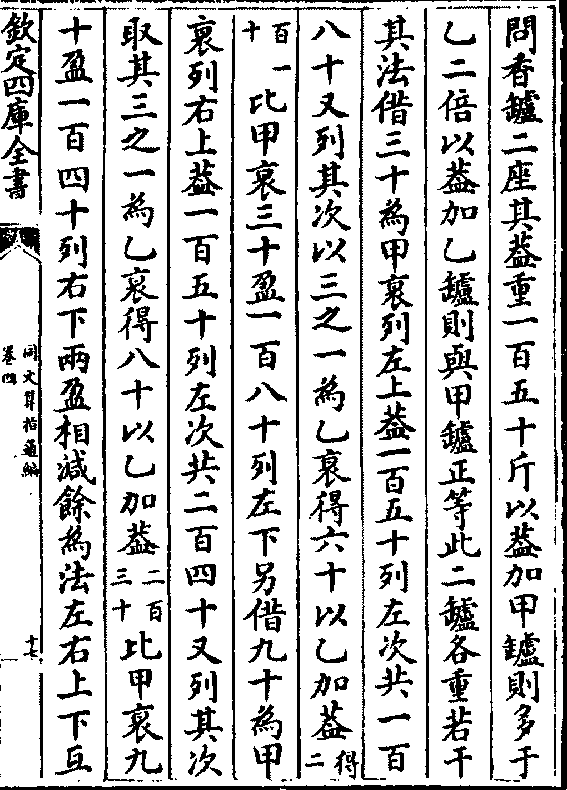 問香鑪二座其葢重一百五十斤以葢加甲鑪則多于
乙二倍以葢加乙鑪則與甲鑪正等此二鑪各重若干
其法借三十為甲衰列左上葢一百五十列左次共一百
八十又列其次以三之一為乙衰得六十以乙加葢得二
百一十比甲衰三十盈一百八十列左下另借九十為甲
衰列右上葢一百五十列左次共二百四十又列其次
取其三之一為乙衰得八十以乙加葢二百三十比甲衰九
十盈一百四十列右下兩盈相減餘為法左右上下互
欽定四庫全書
同文算指通編
卷四
十七